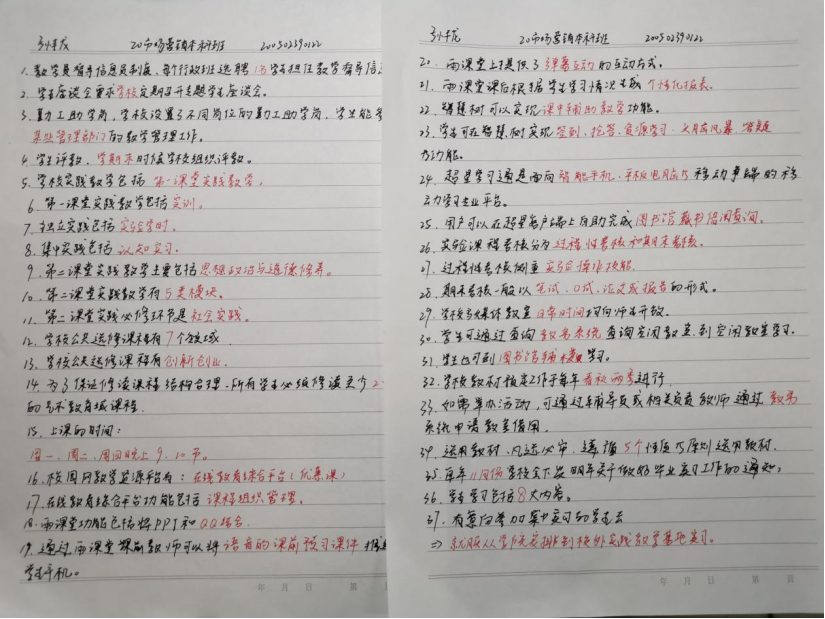 孙伟龙 20市场营销本科班 200502390122
1.教学员督导信息员制度、每个行政班选聘1名学生担任教学督导信息
2.学生座谈会要求学校定期召开主题学生座谈会。
3.勤工助学岗,学校设置了不同岗位的勤工助学岗,学生能参
某些管理部门的教学管理工作。
4.学生评教,学期末时候学校组织评教。
5.学校实践教学包括第一课堂实践教学。
6.第一课堂实践教学包括实训。
7.独立实践包括实验学时。
8.集中实践包括认知实习。
9.第二课堂实践教学主要包括思想政治与道德修养。
10.第二课堂实践教学有5类模块。
11.第二课堂实践必修环节是社会实践。
12.学校公共选修课程有7个领域
13.学校公共选修课程有创新创业。
14.为了保证修读课程结构合理、所有学生必须修读至少2
的艺术教育域课程.
15.上课的时间:
周一、周二、周四晚上9.10节。
16.校园网教学资源平台有:在线教育综合平台(优慕课)
17.在线教育综合平台功能包括课程组织管理。
18.雨课堂功能包括将PPT和QQ结合.
19.通过雨课堂课前教师可以将语音的课前预习课件推送
学生手机。
孙伟龙 20市场营销本科班 200502390122
20.雨课堂上提供了弹幕互动的互动方式。
21.雨课堂课后根据学生学习情况生成个性化报表。
22.智慧树可以实现课中辅助教学功能。
23.学生可在智慧树实现签到、抢答、资源学习、头脑风暴、答疑
等功能。
24.超星学习通是面向智能手机、平板电脑等移动终端的移
动学习专业平台。
25.用户可以在超星客户端上自助完成图书馆藏书借阅查询。
26.实验课程考核分为过程性考核和期末考核。
27.过程性考核侧重实验操作技能.
28.期末考核一般以笔试、口试、论文或报告的形式。
29.学校多媒体教室日常时间均向师生开放.
30.学生可通过查询教务系统查询空闲教室.到空闲教室学习.
31.学生也可到图书馆辅楼学习。
32.学校教材预定工作于每年春秋两季进行.
33.如需举办活动,可通过辅导员或相关负责教师通过教务
系统申请教室借用.
34.选用教材、凡选必审、遵循5个性质的原则选用教材.
35.每年11月份学校会下发明年关于做好毕业实习工作的通知;
36.学习包括8大内容。
37.有意向参加集中实习的学生去
⇒ 就服从学院安排到校外实践教学基地实习。